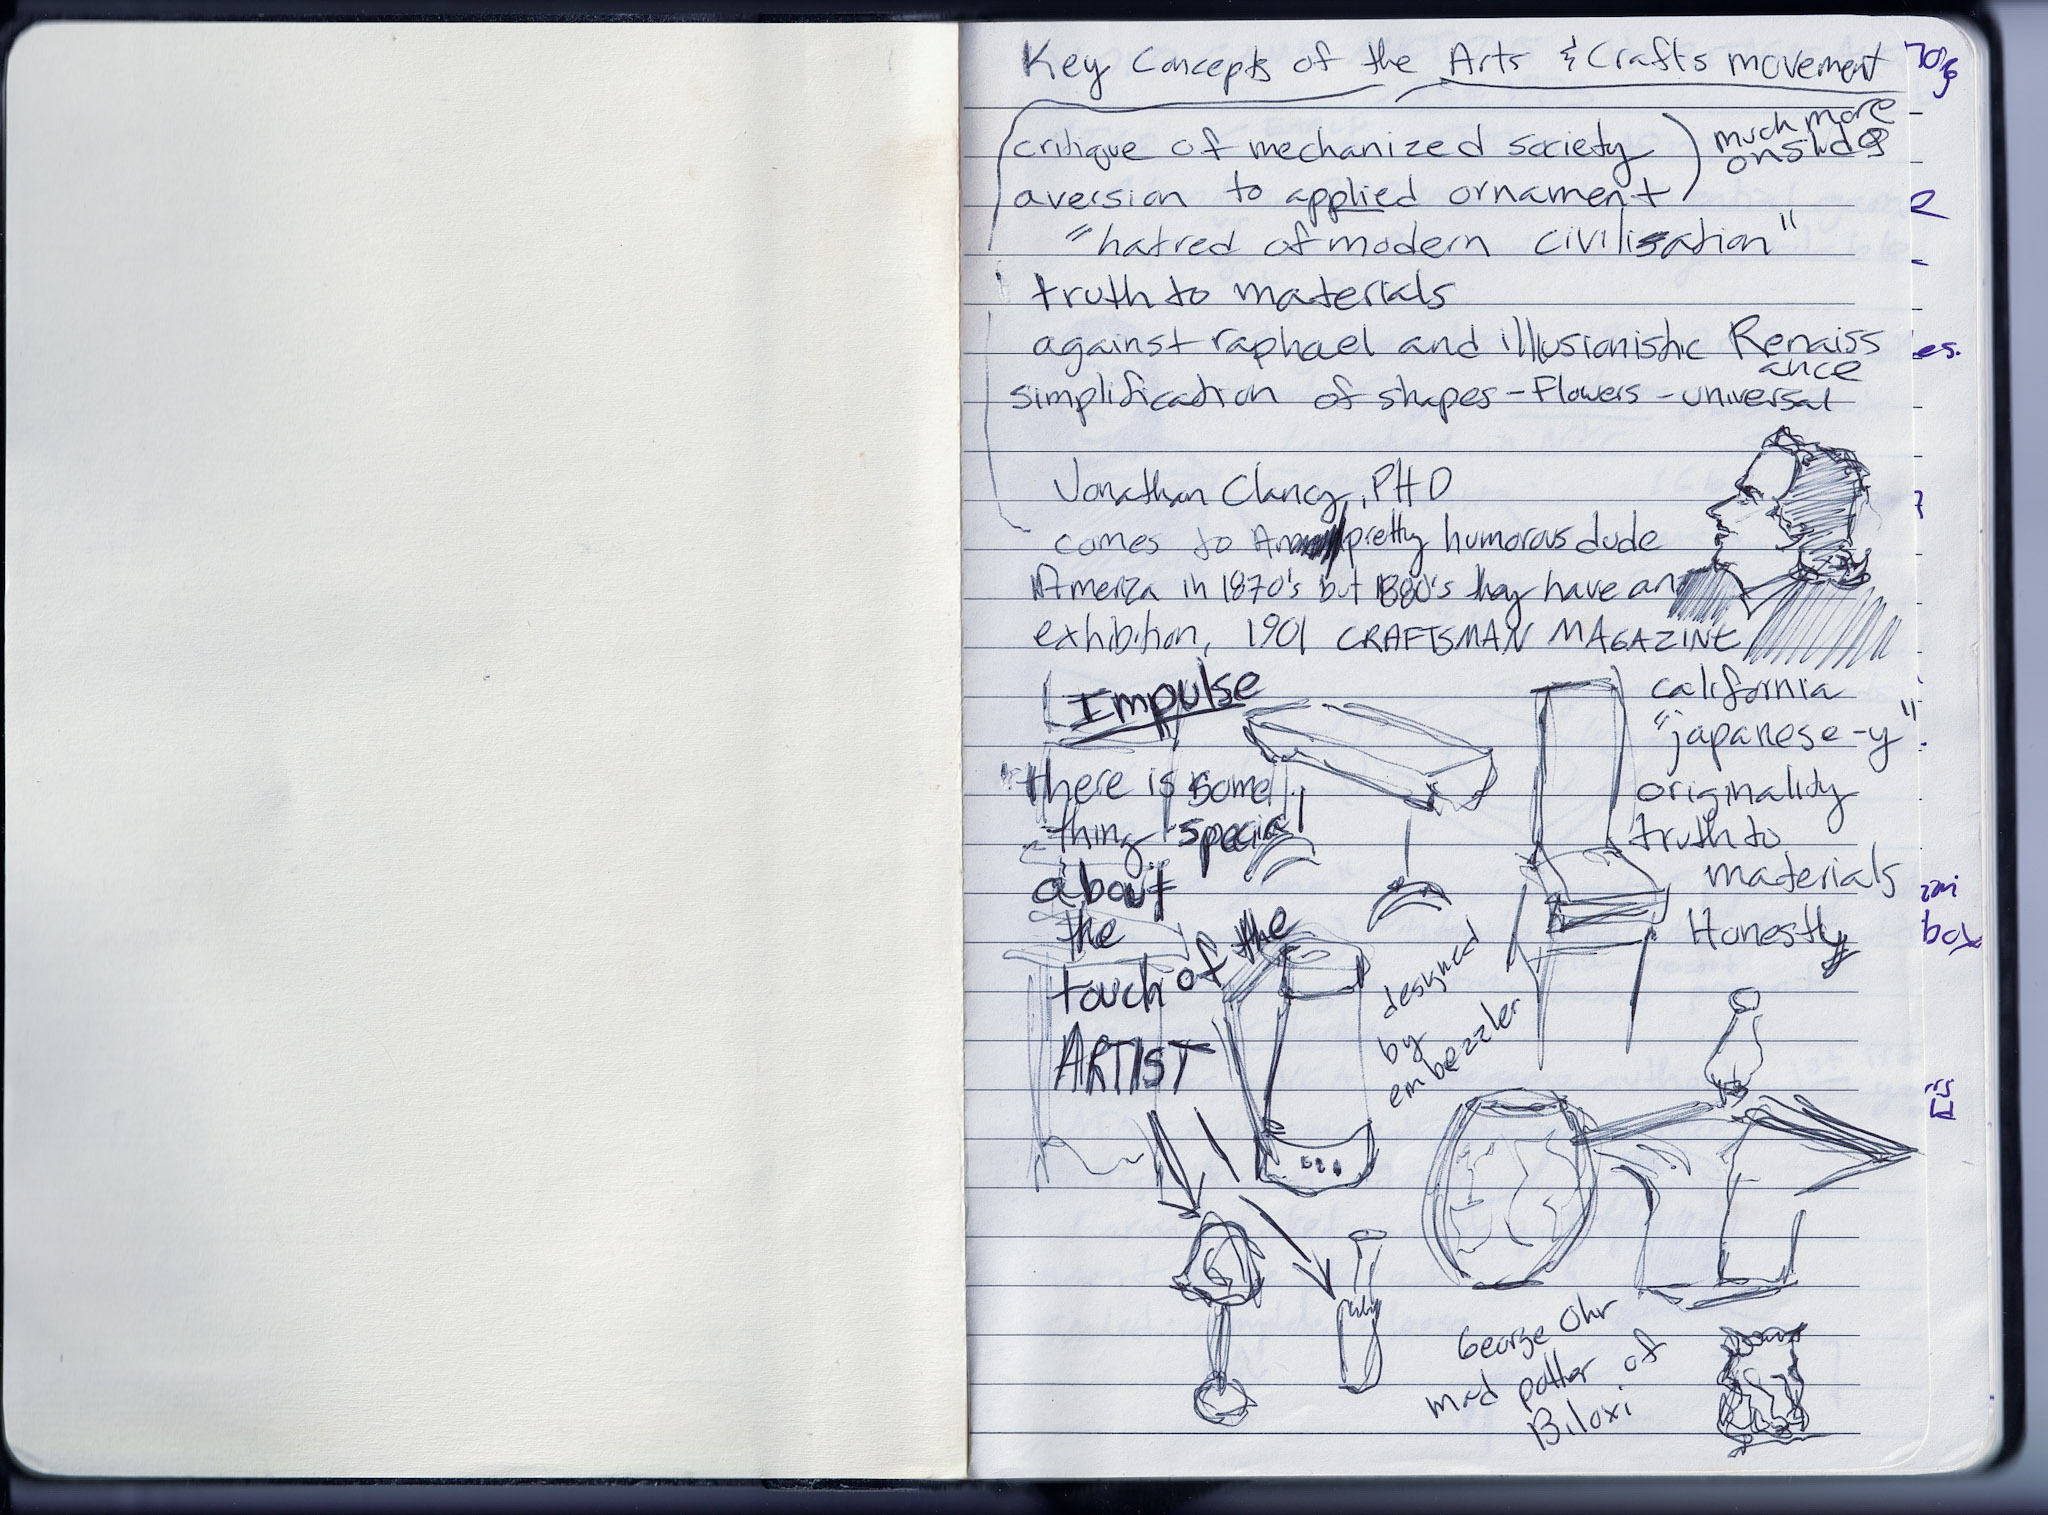 Key Concepts of the Arts & Crafts movement
critique of mechanized society
much more
on slides
aversion to applied ornament
"hatred of modern civilisation"
truth to materials
against raphael and illusionistic Renaiss
ance
simplification of shapes - Flowers - universal
Jonathan Clancy, PHD
comes to pretty humorous dude
America in 1870's but 1880's they have an
exhibition, 1901 CRAFTSMAN MAGAZINE
Impulse
california
"japanese-y"
originality
truth to
materials
Honestly
"there is some
thing special
about
the
touch of the
ARTIST
designed
by
embezzler
George Ohr
mad potter of
Biloxi
es.
box